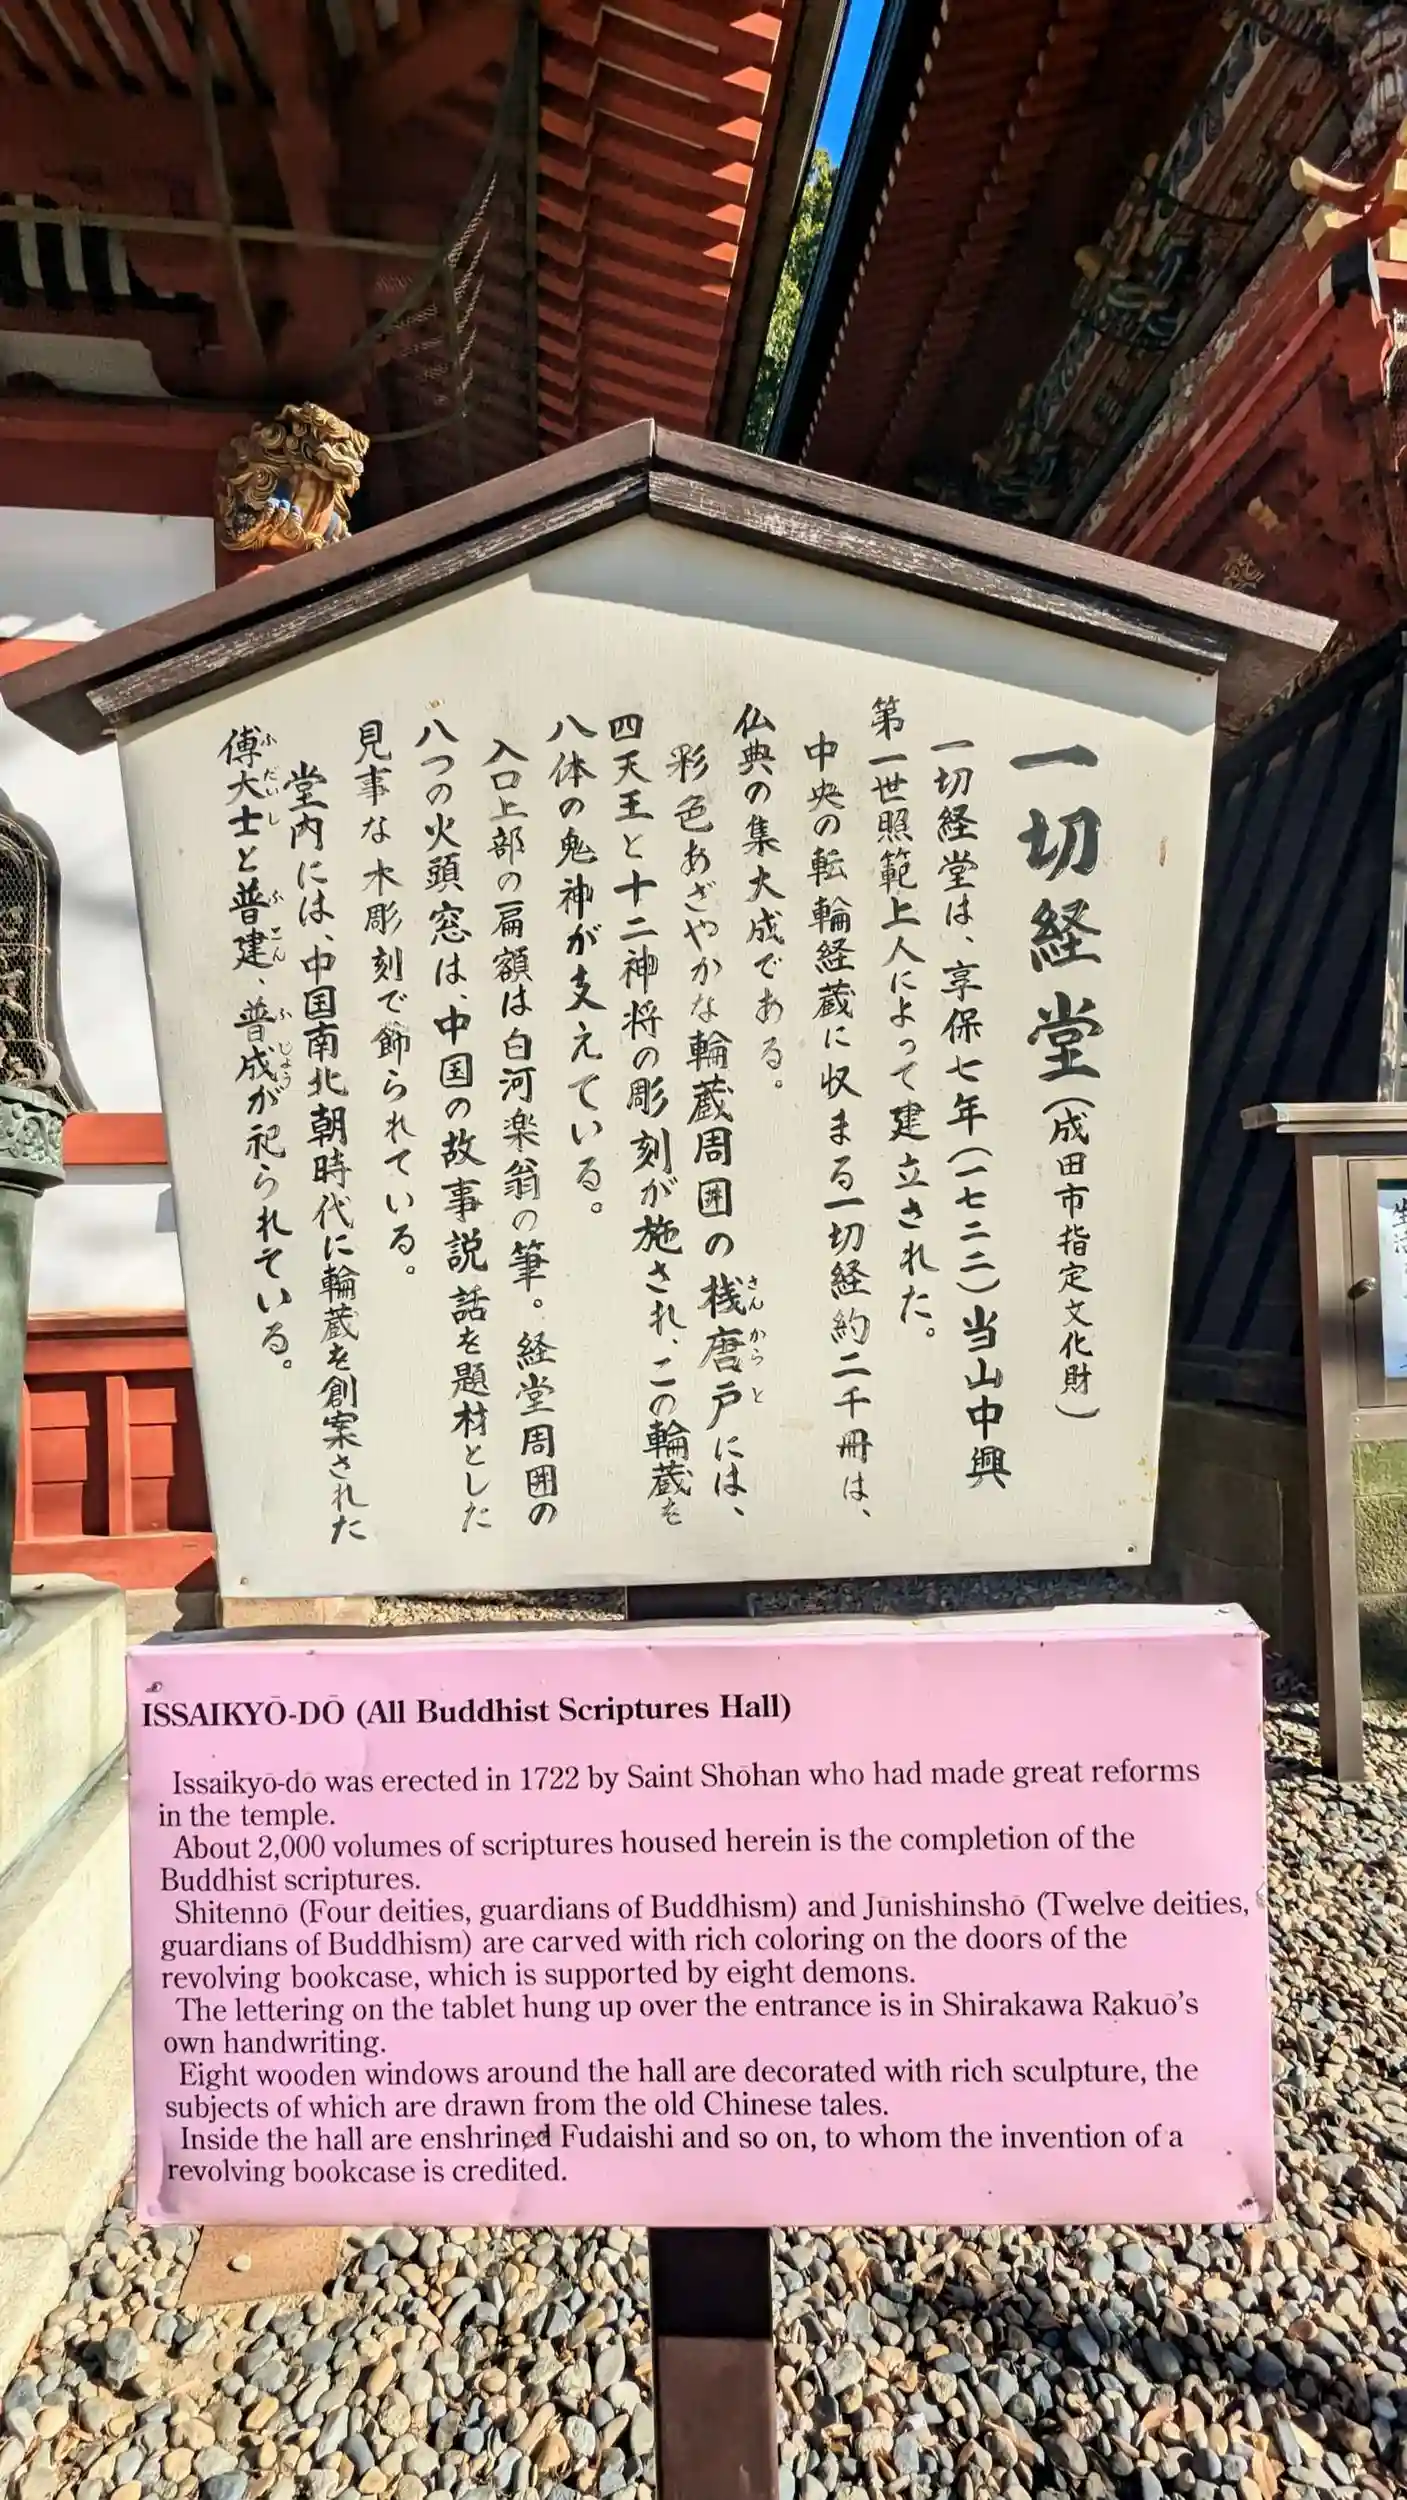 一切経堂(成田市指定文化財)
一切経堂は、享保七年(一七二二)当山中興
第一世照範上人によって建立された。
中央の転輪経蔵に収まる一切経約二千冊は、
仏典の集大成である。
彩色あざやかな輪蔵周囲の桟唐戸には、
さんからと
四天王と十二神将の彫刻が施され、この輪蔵を
八体の鬼神が支えている。
入口上部の扁額は白河楽翁の筆。経堂周囲の
八つの火頭窓は、中国の故事説話を題材とした
見事な木彫刻で飾られている。
堂内には、中国南北朝時代に輪蔵を創案された
傅大士と普建、普成が祀られている。
ふだいし ふこん ふじょう
ISSAIKYŌ-DŌ (All Buddhist Scriptures Hall)
Issaikyō-dō was erected in 1722 by Saint Shōhan who had made great reforms
in the temple.
About 2,000 volumes of scriptures housed herein is the completion of the
Buddhist scriptures.
Shitennō (Four deities, guardians of Buddhism) and Jūnishinshō (Twelve deities,
guardians of Buddhism) are carved with rich coloring on the doors of the
revolving bookcase, which is supported by eight demons.
The lettering on the tablet hung up over the entrance is in Shirakawa Rakuō's
own handwriting.
Eight wooden windows around the hall are decorated with rich sculpture, the
subjects of which are drawn from the old Chinese tales.
Inside the hall are enshrined Fudaishi and so on, to whom the invention of a
revolving bookcase is credited.